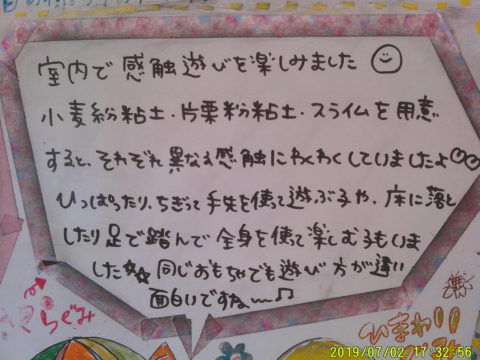 室内で感触遊びを楽しみました
小麦粉粘土・片栗粉粘土・スライムを用意
すると、それぞれ異なる感触にわくわくしていましたよ
ひっぱったり、ちぎって手先を使って遊ぶ子や、床に落と
したり足で踏んで全身を使って楽しむ子もいま
した☆☆ 同じおもちゃでも遊び方が違い
面白いですね〜♫
らぐみ
ひまわり
2019/07/02 17:32:56